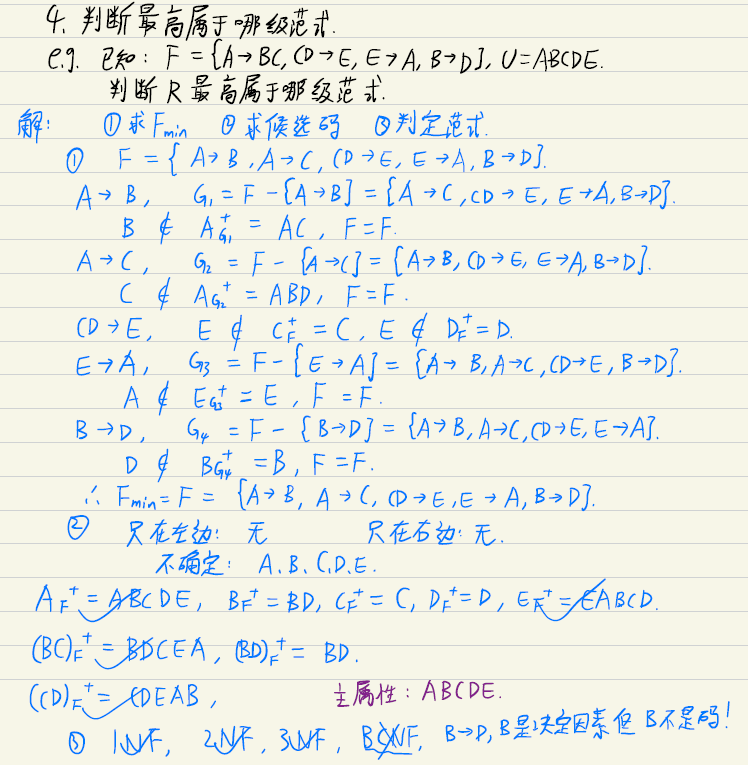 4. 判断最高属于哪级范式.
e.g. 已知: F = {A→BC, CD→E, E→A, B→D}, U=ABCDE.
判断 R 最高属于哪级范式.
解: ①求Fmin ②求候选码 ③判定范式.
① F = { A→B, A→C, CD→E, E→A, B→D}.
A→B, G₁ = F-{A→B} = {A→C, CD→E, E→A, B→D}.
B ∉ A_{G₁}⁺ = AC, F=F.
A→C, G₂ = F-{A→C} = {A→B, CD→E, E→A, B→D}.
C ∉ A_{G₂}⁺ = ABD, F=F.
CD→E, E ∉ C_F⁺ = C, E ∉ D_F⁺ = D.
E→A, G₃ = F-{E→A} = {A→B, A→C, CD→E, B→D}.
A ∉ E_{G₃}⁺ = E, F=F.
B→D, G₄ = F-{B→D} = {A→B, A→C, CD→E, E→A}.
D ∉ B_{G₄}⁺ = B, F=F.
∴ Fmin = F = {A→B, A→C, CD→E, E→A, B→D}.
② 只在左边: 无 只在右边: 无.
不确定: A.B.C.D.E.
A_F⁺ = ABCDE, B_F⁺ = BD, C_F⁺ = C, D_F⁺ = D, E_F⁺ = EABCD.
(BC)_F⁺ = BDCEA, (BD)_F⁺ = BD.
(CD)_F⁺ = CDEAB, 主属性: ABCDE.
③ 1NF, 2NF, 3NF, BCNF, B→D, B是决定因素但 B不是码!